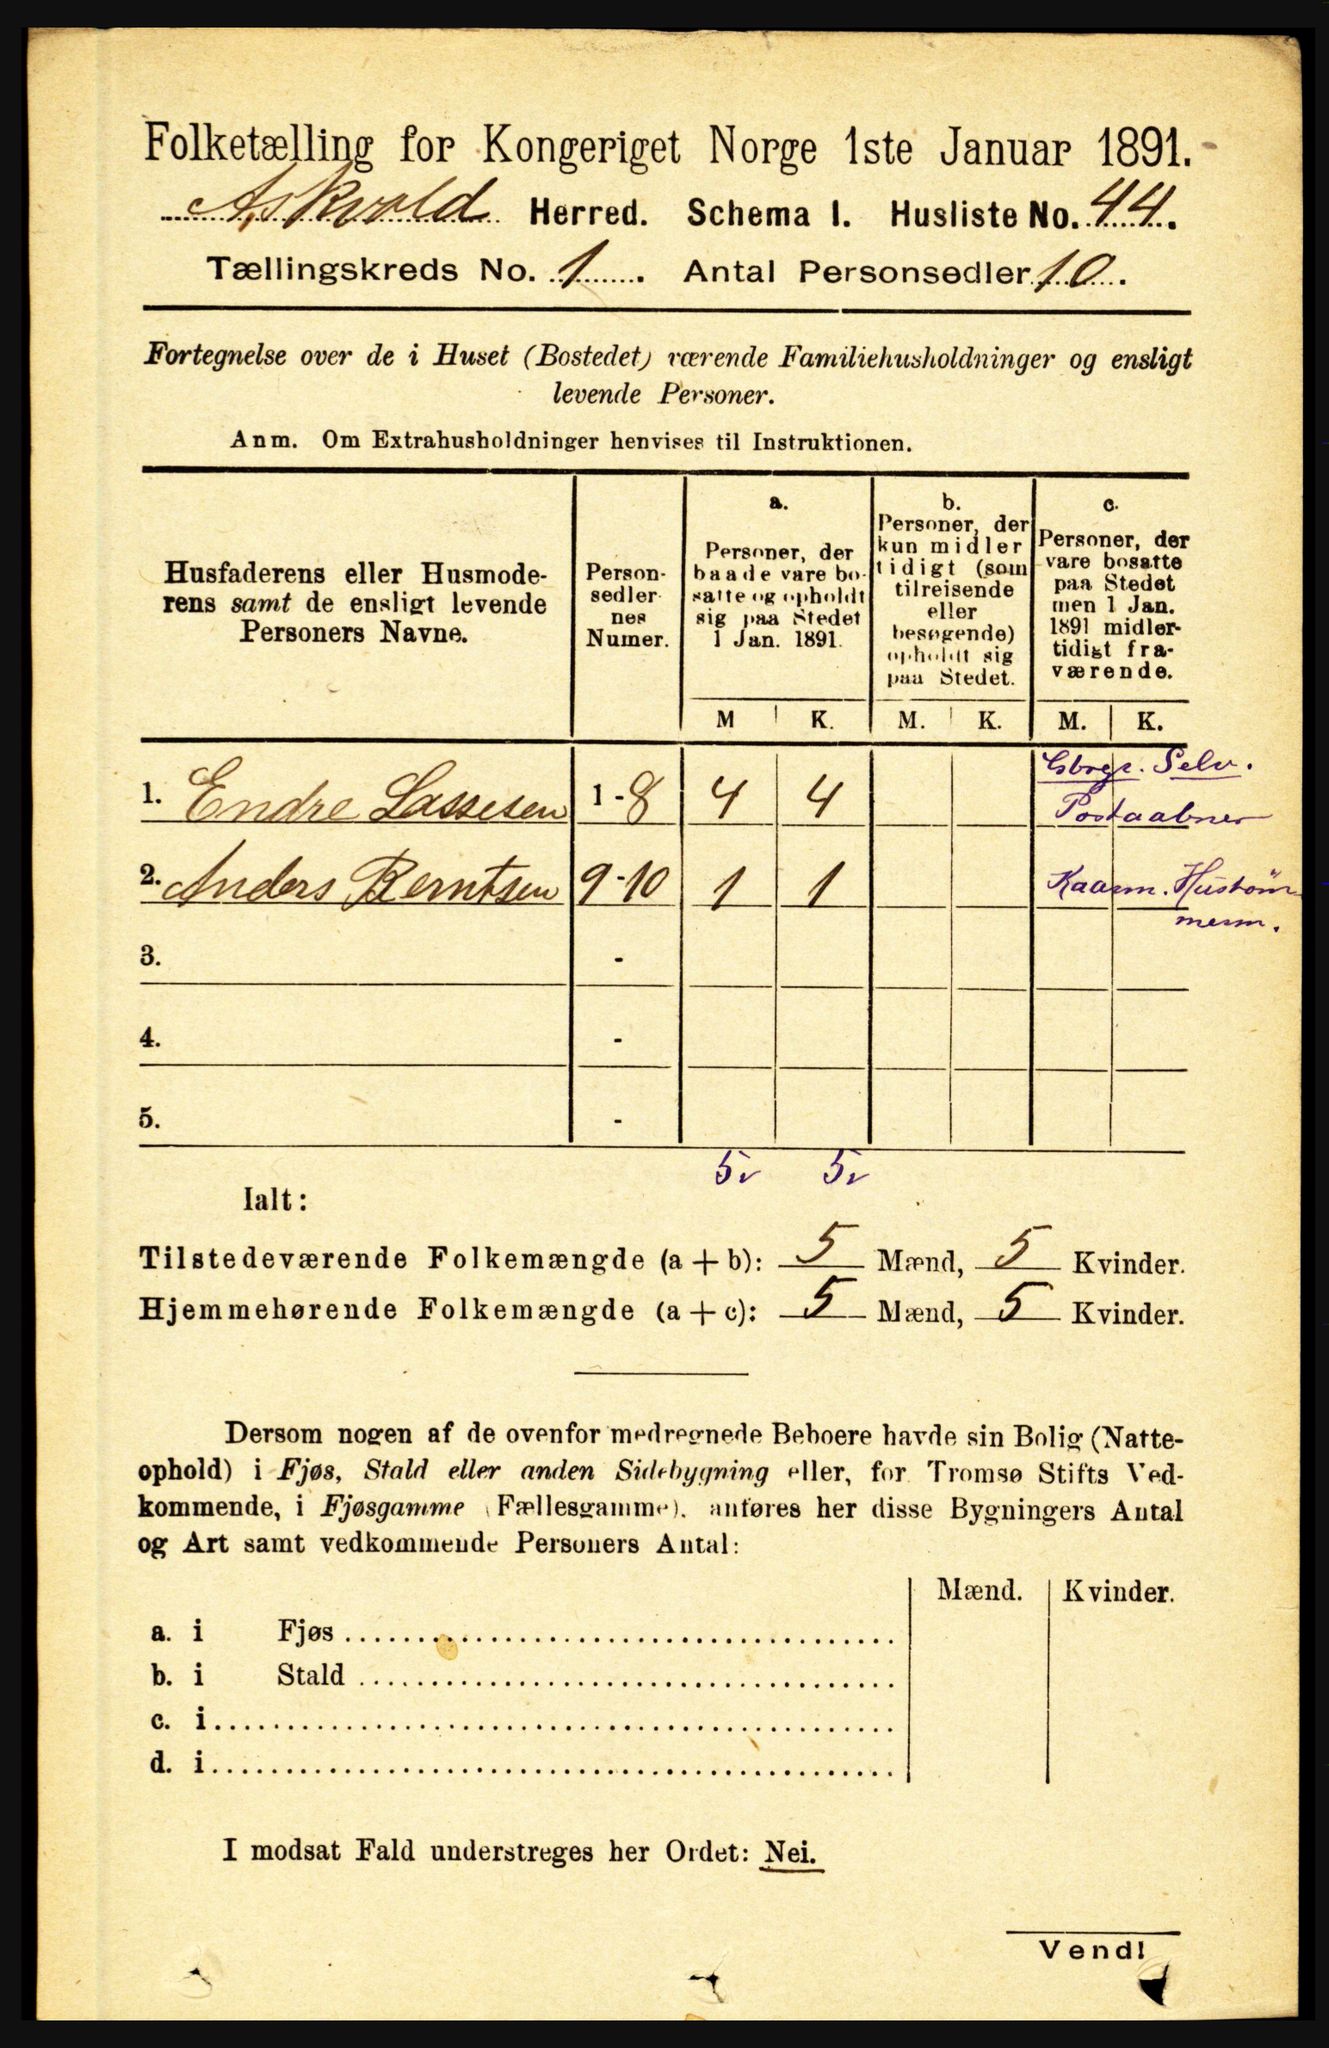 Folketælling for Kongeriget Norge 1ste Januar 1891.
Askvold Herred. Schema I. Husliste No. 44.
Tællingskreds No. 1. Antal Personsedler 10.
Fortegnelse over de i Huset (Bostedet) værende Familiehusholdninger og ensligt
levende Personer.
Anm. Om Extrahusholdninger henvises til Instruktionen.
Husfaderens eller Husmode-
rens samt de ensligt levende
Personers Navne.
Person-
sedler
nes
Numer.
a.
Personer, der
baade vare bo-
satte og opholdt
sig paa Stedet
1 Jan. 1891.
b.
Personer, der
kun midler
tidigt (som
tilreisende
eller
besøgende)
opholdt sig
paa Stedet.
c.
Personer, der
vare bosatte
paa Stedet
men 1 Jan.
1891 midler-
tidigt fra-
værende.
M K. M. K. M. K.
1. Endre Lassesen 1-8 4 4 Gbrgr. Selv.
Postaabner
2. Anders Berntsen 9-10 1 1 Kaarm.
3. -
4. -
5. -
5 5
Ialt:
Tilstedeværende Folkemængde (a + b): 5 Mænd, 5 Kvinder.
Hjemmehørende Folkemængde (a + c): 5 Mænd, 5 Kvinder.
Dersom nogen af de ovenfor medregnede Beboere havde sin Bolig (Natte-
ophold) i Fjøs, Stald eller anden Sidebygning eller, for Tromsø Stifts Ved-
kommende, i Fjøsgamme (Fællesgamme), anføres her disse Bygningers Antal
og Art samt vedkommende Personers Antal:
Mænd. Kvinder.
a. i Fjøs
b. i Stald
c. i
d. i
I modsat Fald understreges her Ordet: Nei.
Vend!